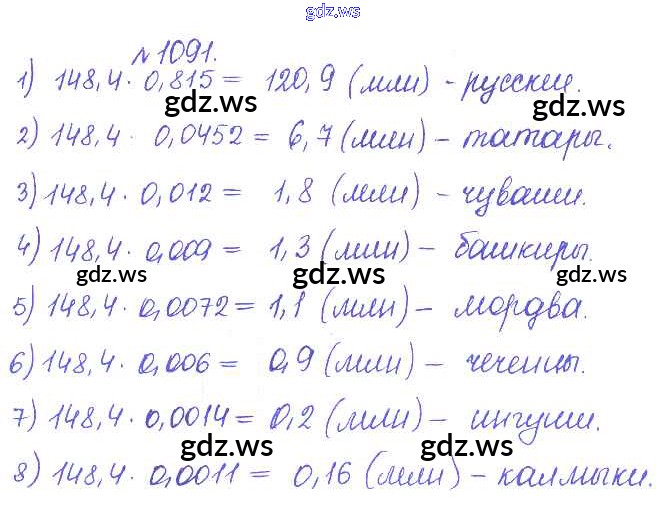 gdz.ws
№1091.
1) 148,4 · 0,815 = 120,9 (млн) - русские.
gdz.ws gdz.ws
2) 148,4 · 0,0452 = 6,7 (млн) - татары.
3) 148,4 · 0,012 = 1,8 (млн) - чуваши.
4) 148,4 · 0,009 = 1,3 (млн) - башкиры.
gdz.ws gdz.ws gdz.ws
5) 148,4 · 0,0072 = 1,1 (млн) - мордва.
6) 148,4 · 0,006 = 0,9 (млн) - чеченцы.
7) 148,4 · 0,0014 = 0,2 (млн) - ингуши.
gdz.ws gdz.ws
8) 148,4 · 0,0011 = 0,16 (млн) - калмыки.